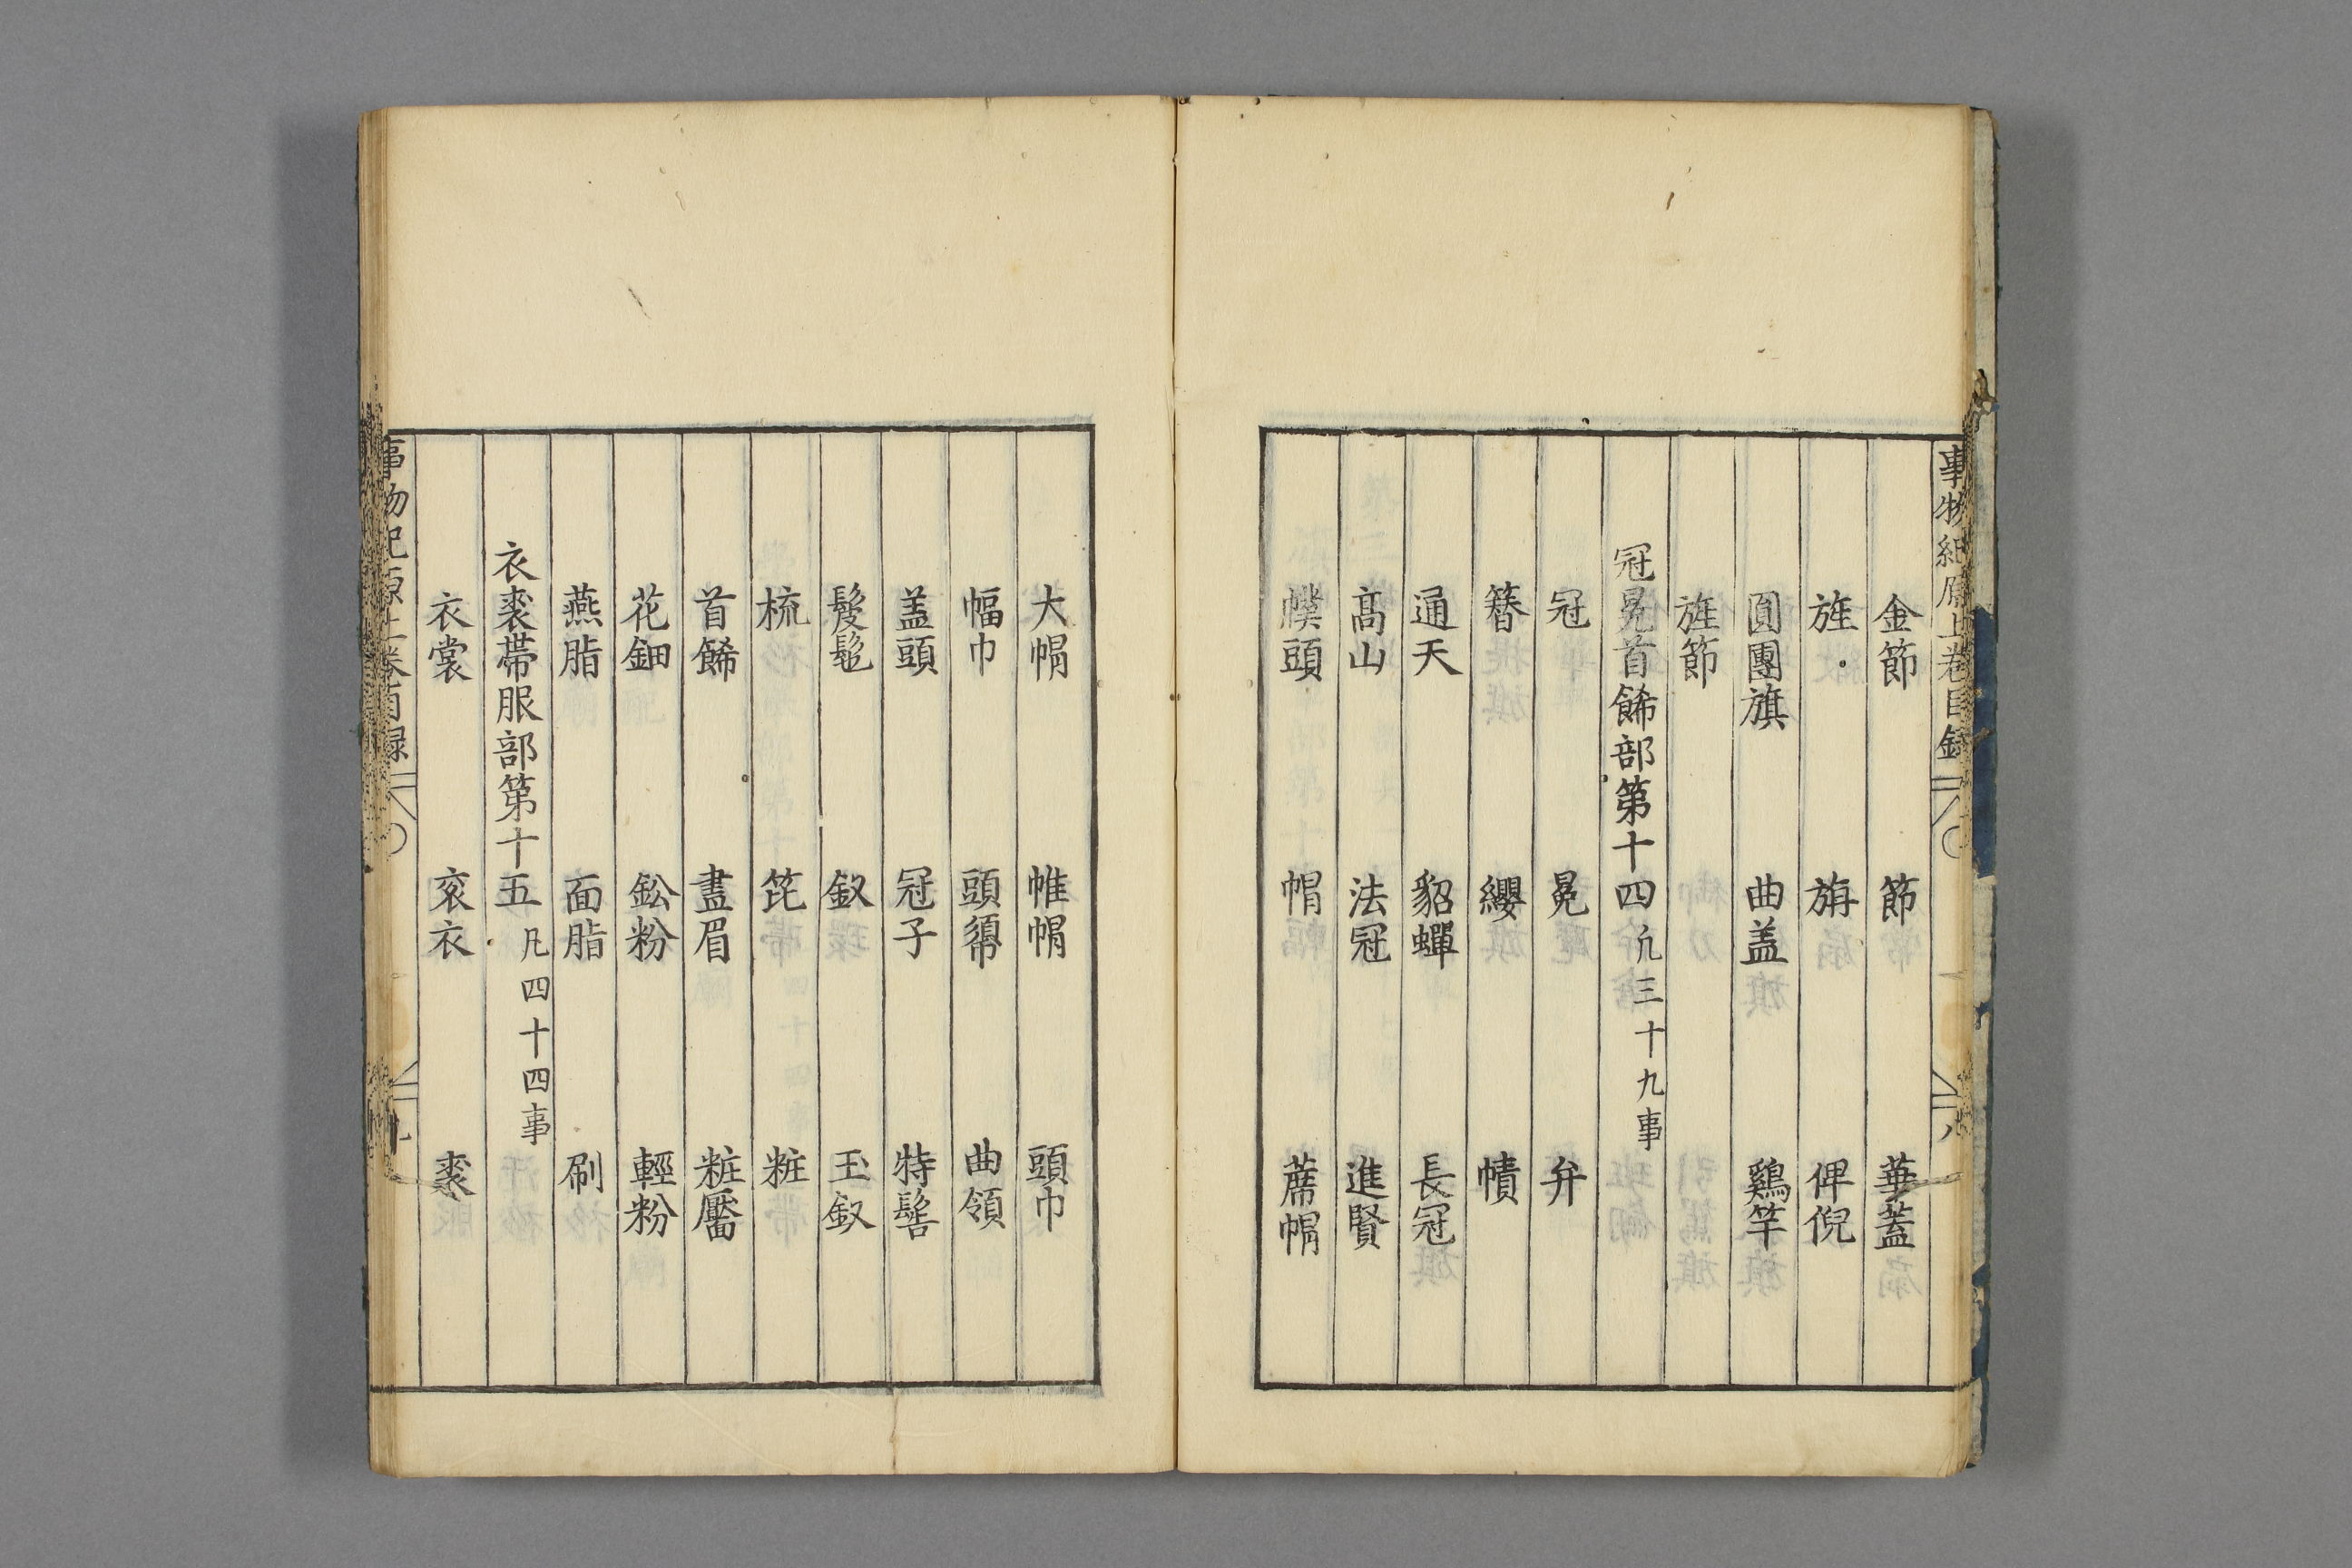 事物紀原上卷目錄 八
金節 節 華蓋
旌 旃 俾倪
圓團旗 曲盖 鷄竿
旌節
冠冕首餙部第十四 凡三十九事
冠 冕 弁
簪 纓 幘
通天 貂蟬 長冠
髙山 法冠 進賢
幞頭 帽 蓆帽
大帽 帷帽 頭巾
幅巾 頭𢄼 曲領
盖頭 冠子 特髻
髲髢 釵 玉釵
梳 笓 粧
首餙 畫眉 粧靨
花鈿 鈆粉 輕粉
燕脂 面脂 刷
衣裘帶服部第十五 凡四十四事
衣裳 衮衣 裘
事物紀原上卷目録 九